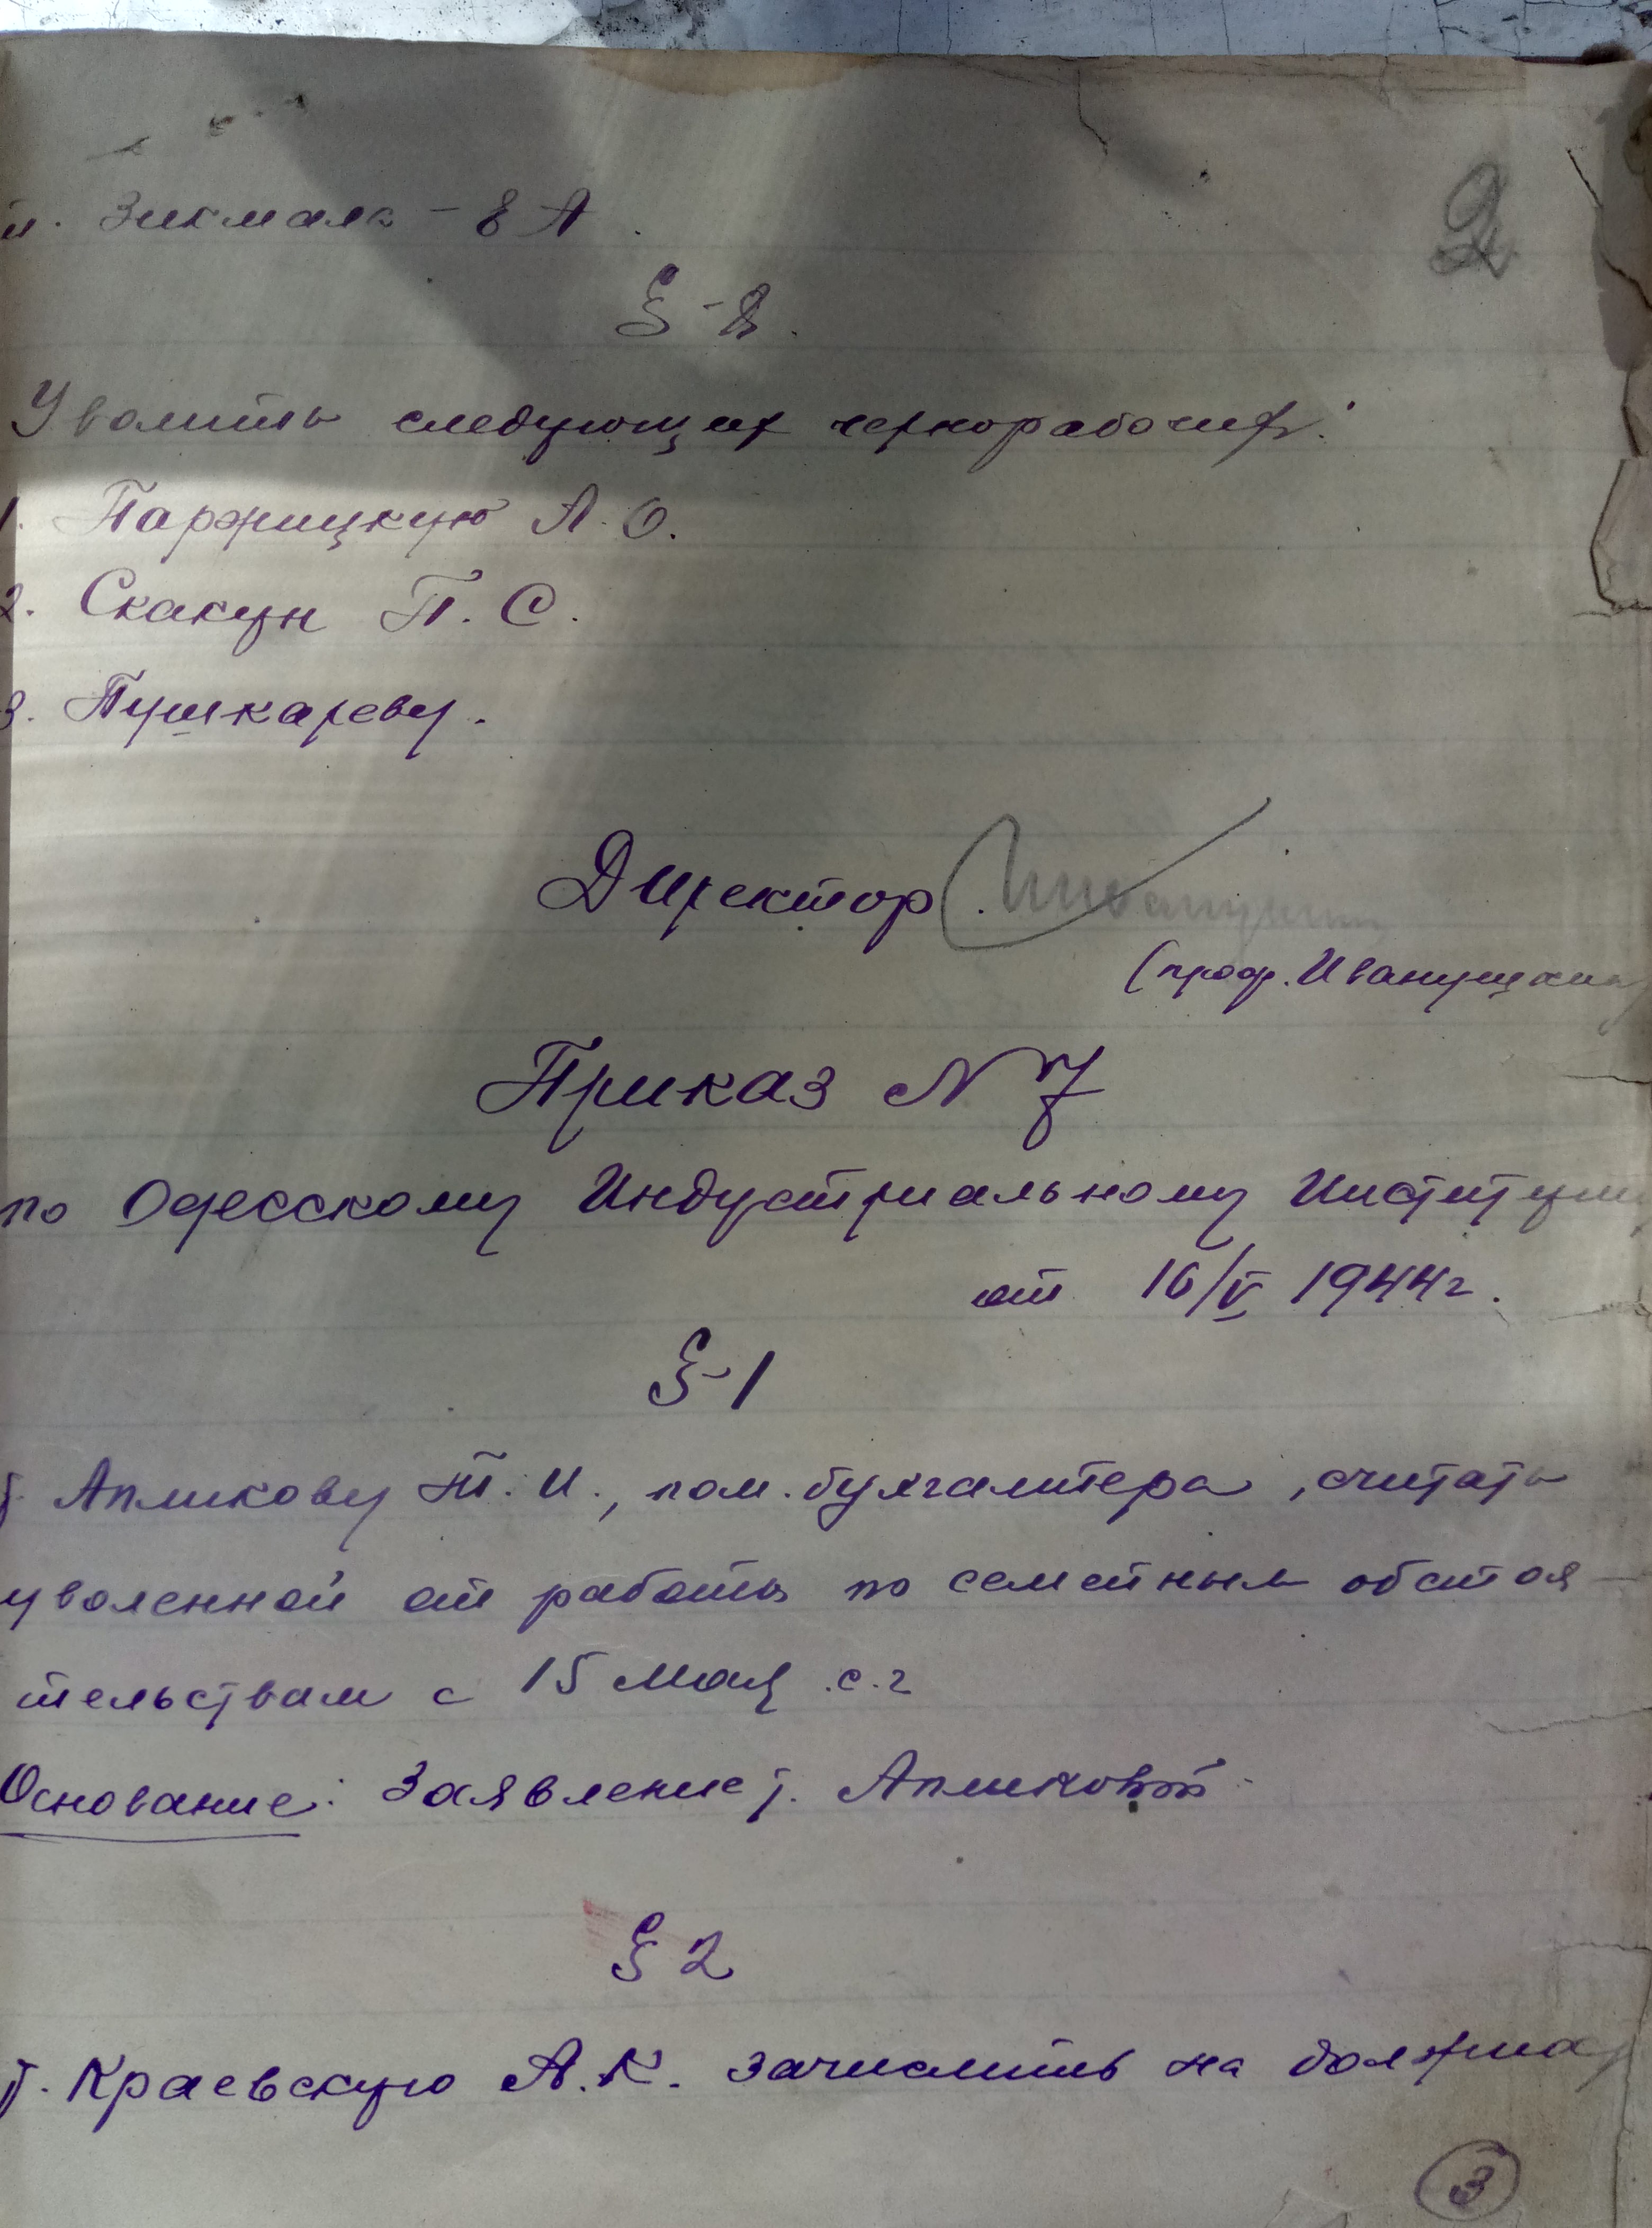 2
§-2.
Уволить следующих чернорабочих:
1. Паржицкую А.О.
2. Скакун П.С.
3. Пушкареву.
Директор
(проф. Иванущкин)
Приказ N 7
по Одесскому Индустриальному Институту
от 16/V 1944г.
§-1
т. Апликову Т.И., пом. бухгалтера, считать
уволенной от работы по семейным обстоя-
тельствам с 15 Мая с.г
Основание: Заявление т. Апликовой
§ 2
т. Краевскую А.К. зачислить на должно
3